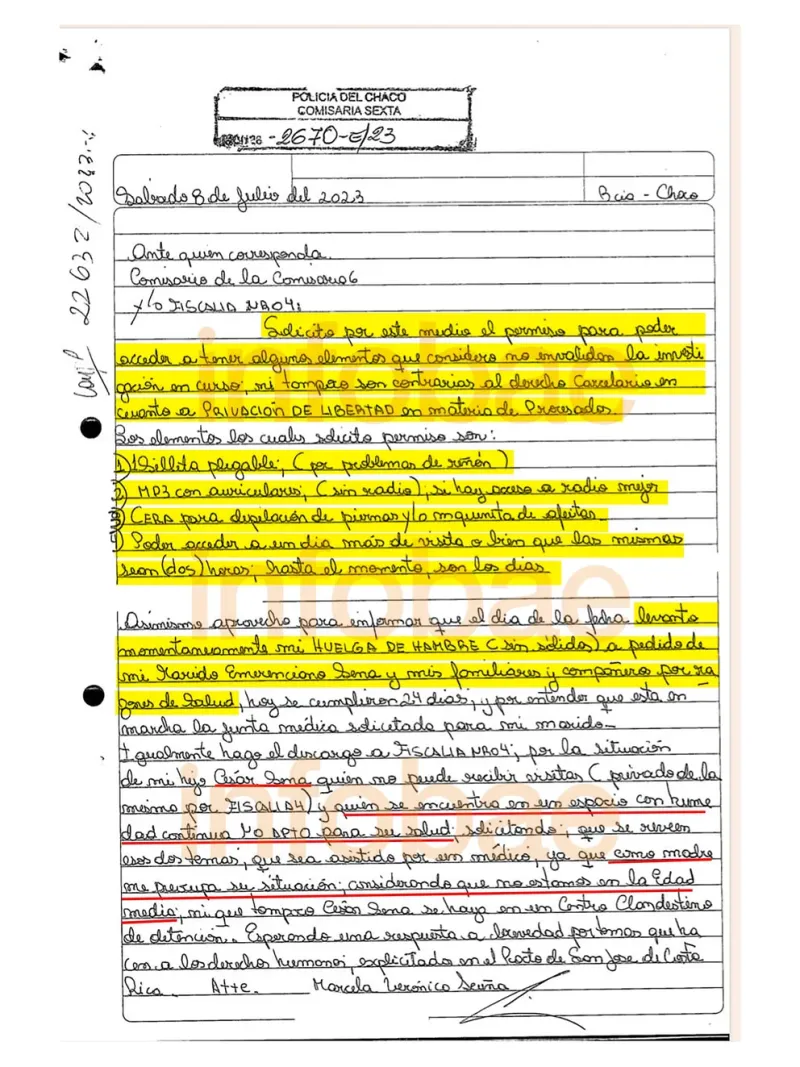 POLICIA DEL CHACO
COMISARIA SEXTA
-2670-E/23
22632/2023
Sabado 8 de Julio del 2023
Rcia - Chaco
Ante quien corresponda.
Comisario de la Comisaria 6
y/o FISCALIA NRO4:
Solicito por este medio el permiso para poder
acceder a tener algunos elementos que considero no invalidan la investi
gación en curso; ni tampoco son contrarias al derecho Carcelario en
cuanto a PRIVACIÓN DE LIBERTAD en materia de Procesados.
Los elementos los cuales solicito permiso son:
1) 1 Sillita plegable; (por problemas de riñón)
2) MP3 con auriculares; (sin radio); si hay acceso a radio mejor
3) CERA para depilación de piernas y/o maquinita de afeitar.
Poder acceder a un dia más de visita o bien que las mismas
sean (dos) horas; hasta el momento, son los dias
Asimismo aprovecho para informar que el dia de la fecha levanto
momentaneamente mi HUELGA DE HAMBRE (sin sólidos) a pedido de
mi Marido Emerenciano Sena y mis familiares y compañeros por ra
zones de Salud, hoy se cumplieron 24 dias; y por entender que esta en
marcha la junta médica solicitada para mi marido-
Igualmente hago el descargo a FISCALIA NRO4; por la situación
de mi hijo César Sena quién no puede recibir visitas (privado de la
misma por FISCALIA4) y quien se encuentra en un espacio con hume
dad continua NO APTO para su salud; solicitando; que se reveen
esos dos temas; que sea asistido por un médico, ya que como madre
me preocupa su situación; considerando que no estamos en la Edad
media; ni que tampoco César Sena se haya en un Centro Clandestino
de detención. Esperando una respuesta a brevedad por temas que ha
cen a los derechos humanos; explicitado en el Pacto de San Jose de Costa
Rica. Atte. Marcela Verónica Acuña
infobae
infobae
infobae